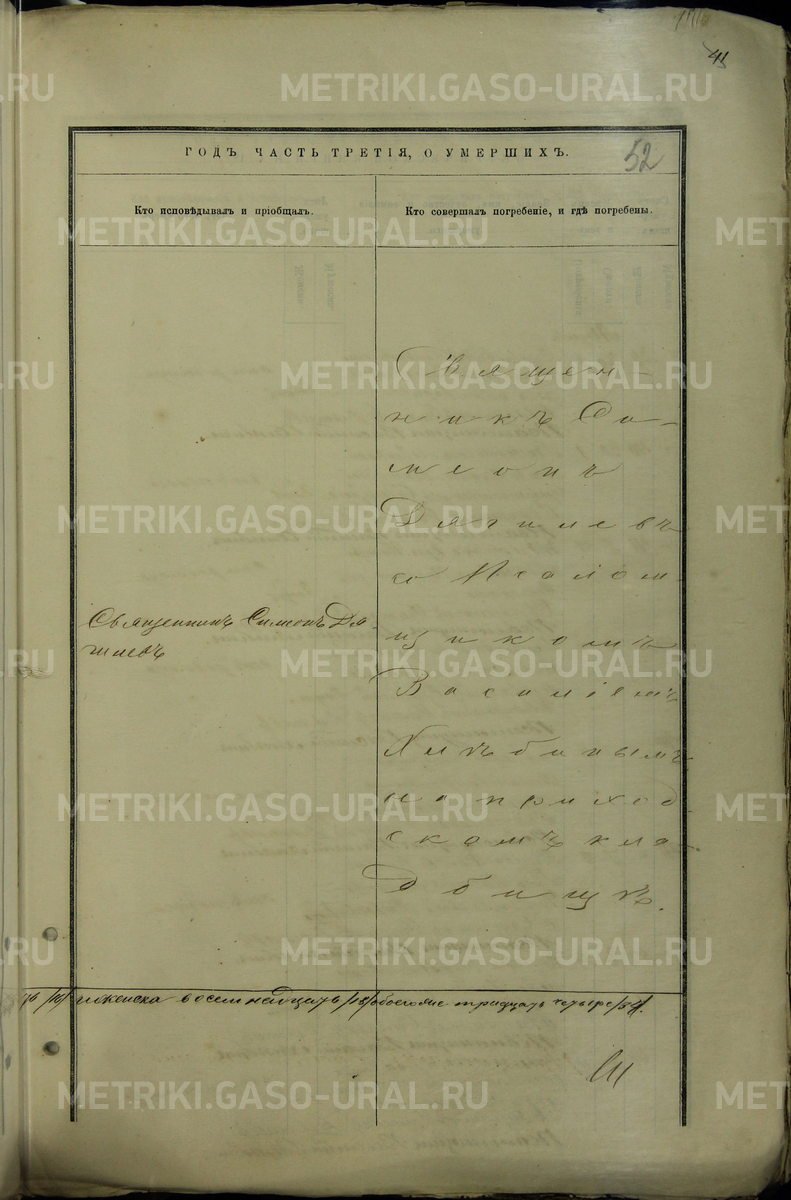 41
52
ГОДЪ ЧАСТЬ ТРЕТІЯ, О УМЕРШИХЪ.
Кто исповѣдывалъ и пріобщалъ.
Кто совершалъ погребеніе, и гдѣ погребены.
Священникъ Симеонъ Дя-
гилевъ
Священ-
никъ Си-
меонъ
Дягилевъ
со Псалом-
щикомъ
Василіемъ
Хлѣбинымъ
на приход-
скомъ кла-
дбищѣ.
женска восемнадцать /18/ обоегоже тридцать четыре /34/.
METRIKI.GASO-URAL.RU